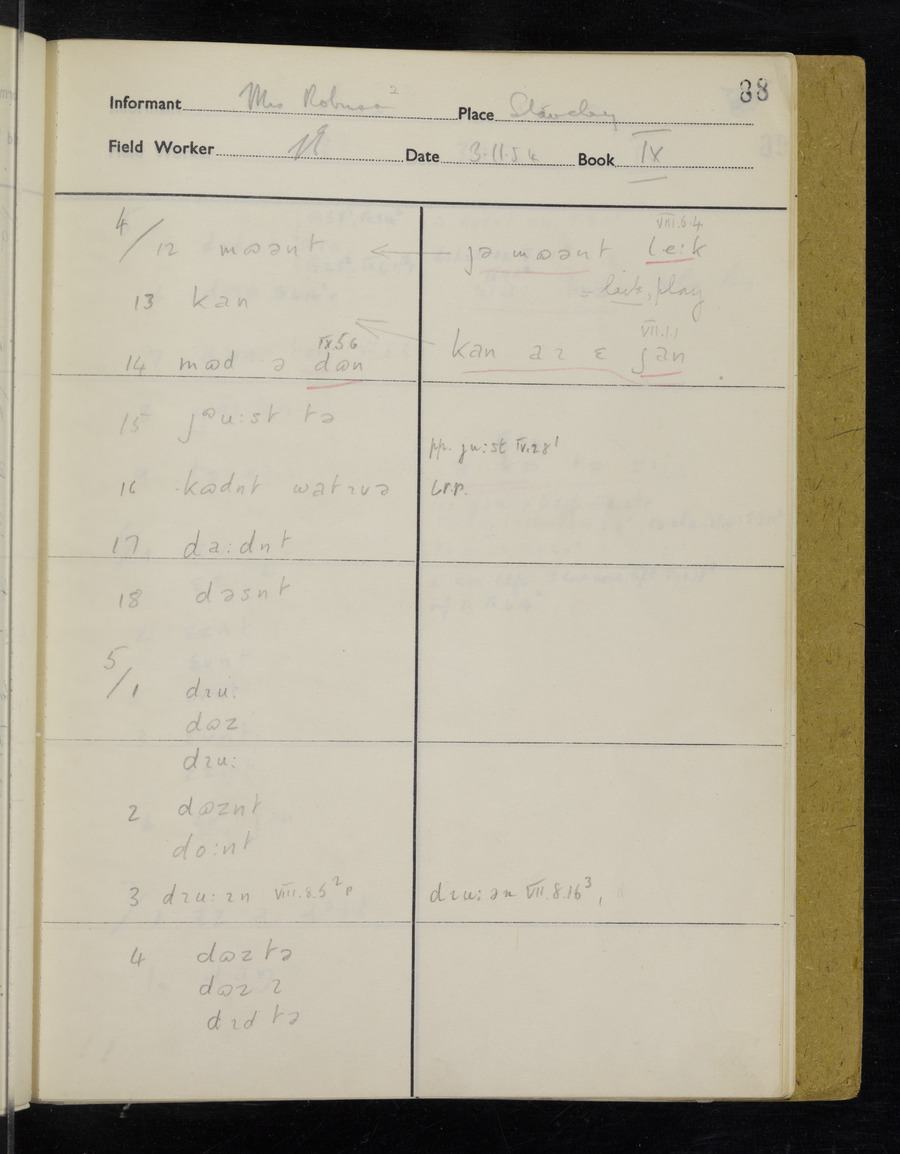 88
Informant Mrs Robinson² Place Staveley
Field Worker Date 3.11.54 Book IX
4/12 mɷənt ← jə mɷənt le:k VIII.6.4
= laik, play
13 kan
kan aɪ ɛ ʃan VII.1.1
14 mɷd ə dɷn IX.5.6
15 jᶷu:st tə
pp. ju:st IV.2.8¹
16 kɷdnt watɪvə i.r.p.
17 da:dnt
18 dəsnt
5/1 dɪu:
dɷz
dɪu:
2 dɷznt
do:nt
3 dɪu:ɪn VIII.8.5² p dɪu:ən VII.8.16³,
4 dɷz tə
dɷz ɪ
dɪd tə